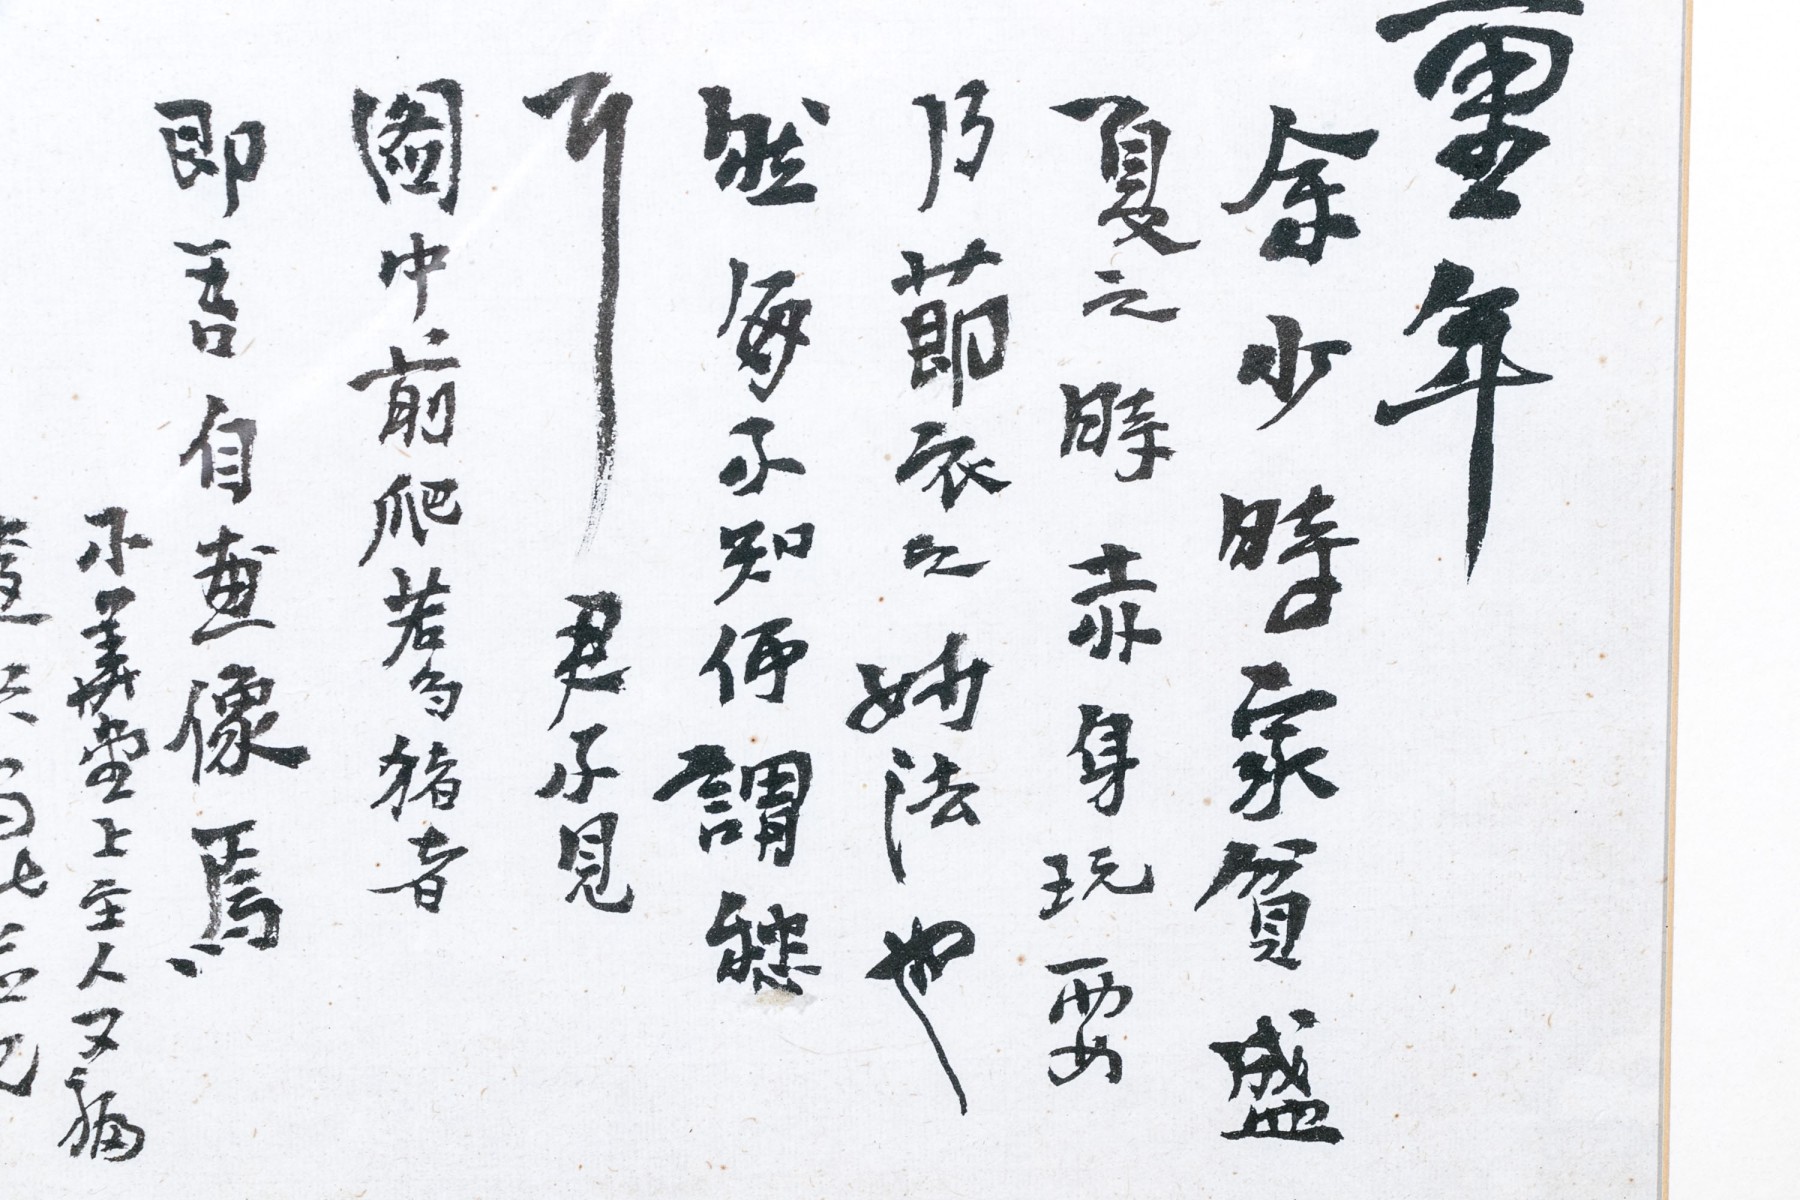 童年
余少時家貧盛
夏之時赤身玩耍
乃節衣之妙法也
然每不知何謂愁
耳 君子見
圖中前爬若为猪者
即吾自畫像焉
不美堂上主人又